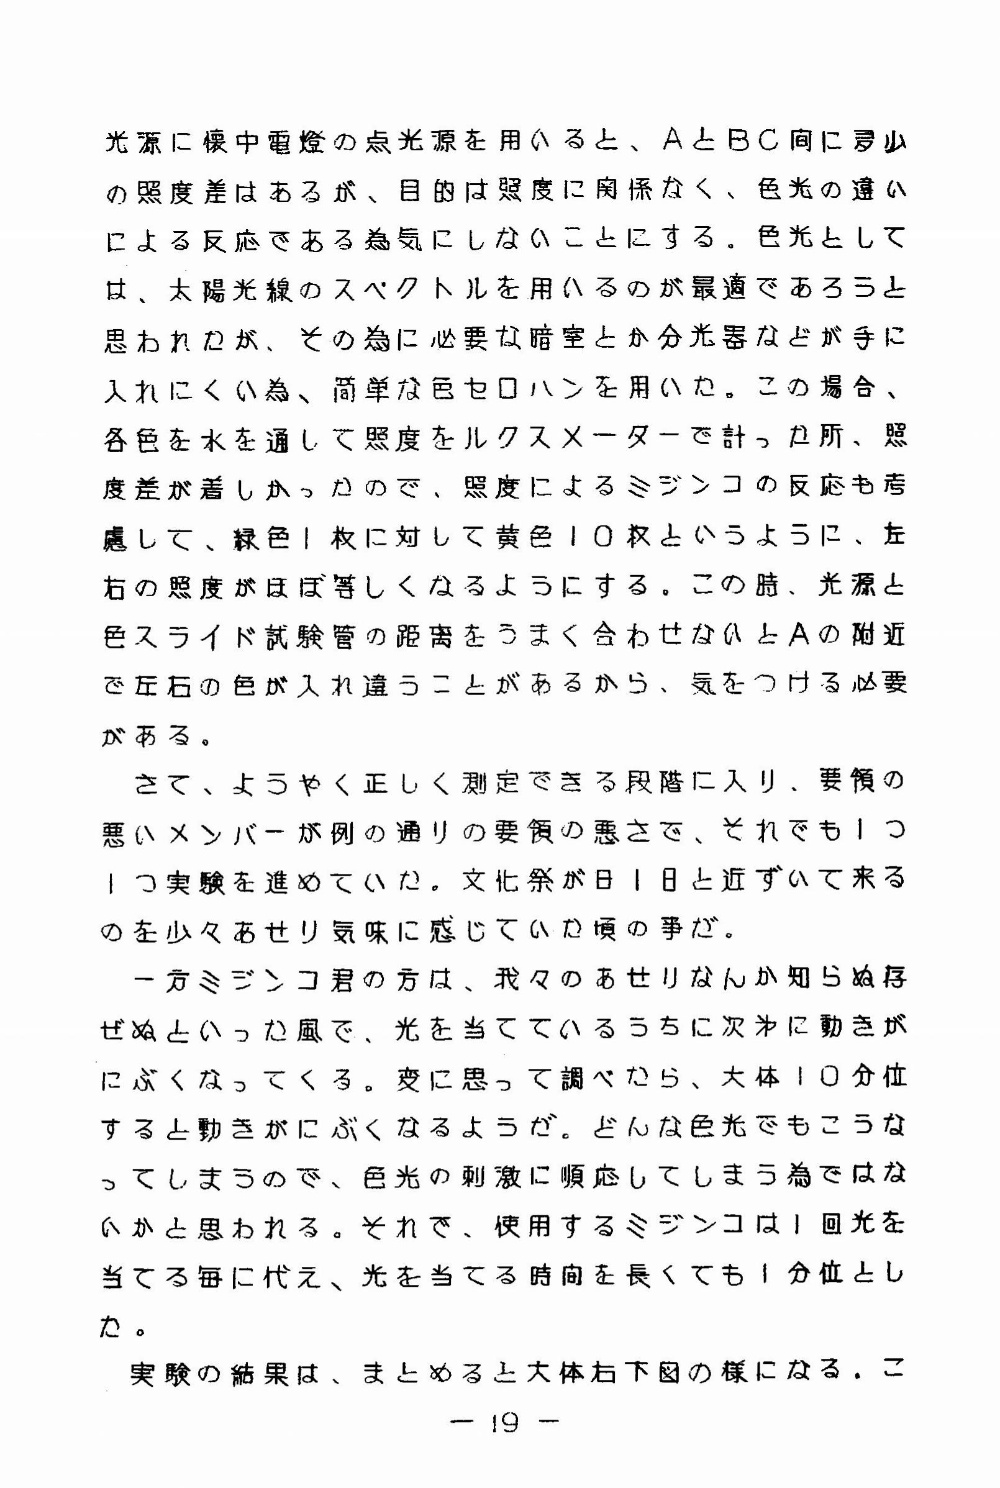 光源に懐中電燈の点光源を用いると、AとBC間に多少
の照度差はあるが、目的は照度に関係なく、色光の違い
による反応である為気にしないことにする。色光として
は、太陽光線のスペクトルを用いるのが最適であろうと
思われたが、その為に必要な暗室とか分光器などが手に
入れにくい為、簡単な色セロハンを用いた。この場合、
各色を水を通して照度をルクスメーターで計った所、照
度差が著しかったので、照度によるミジンコの反応も考
慮して、緑色1枚に対して黄色10枚というように、左
右の照度がほぼ等しくなるようにする。この時、光源と
色スライド試験管の距離をうまく合わせないとAの附近
で左右の色が入れ違うことがあるから、気をつける必要
がある。
さて、ようやく正しく測定できる段階に入り、要領の
悪いメンバーが例の通りの要領の悪さで、それでも1つ
1つ実験を進めていた。文化祭が日1日と近ずいて来る
のを少々あせり気味に感じていた頃の事だ。
一方ミジンコ君の方は、我々のあせりなんか知らぬ存
ぜぬといった風で、光を当てているうちに次第に動きが
にぶくなってくる。変に思って調べたら、大体10分位
すると動きがにぶくなるようだ。どんな色光でもこうな
ってしまうので、色光の刺激に順応してしまう為ではな
いかと思われる。それで、使用するミジンコは1回光を
当てる毎に代え、光を当てる時間を長くても1分位とし
た。
実験の結果は、まとめると大体右下図の様になる。こ
― 19 ―